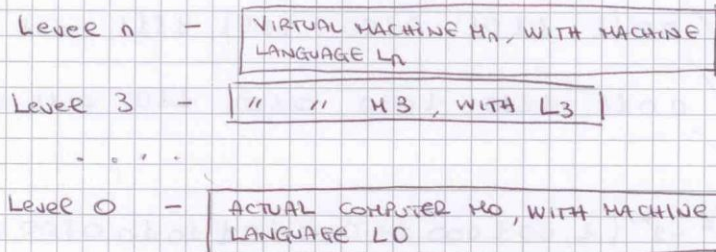 Level n - VIRTUAL MACHINE Mn, WITH MACHINE
LANGUAGE Ln
Level 3 - " " M3, WITH L3
. . . .
Level 0 - ACTUAL COMPUTER M0, WITH MACHINE
LANGUAGE L0